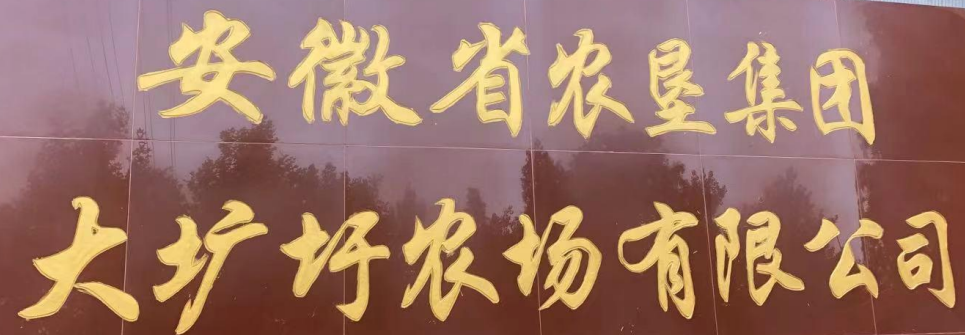 安徽省农垦集团
大圹圩农场有限公司